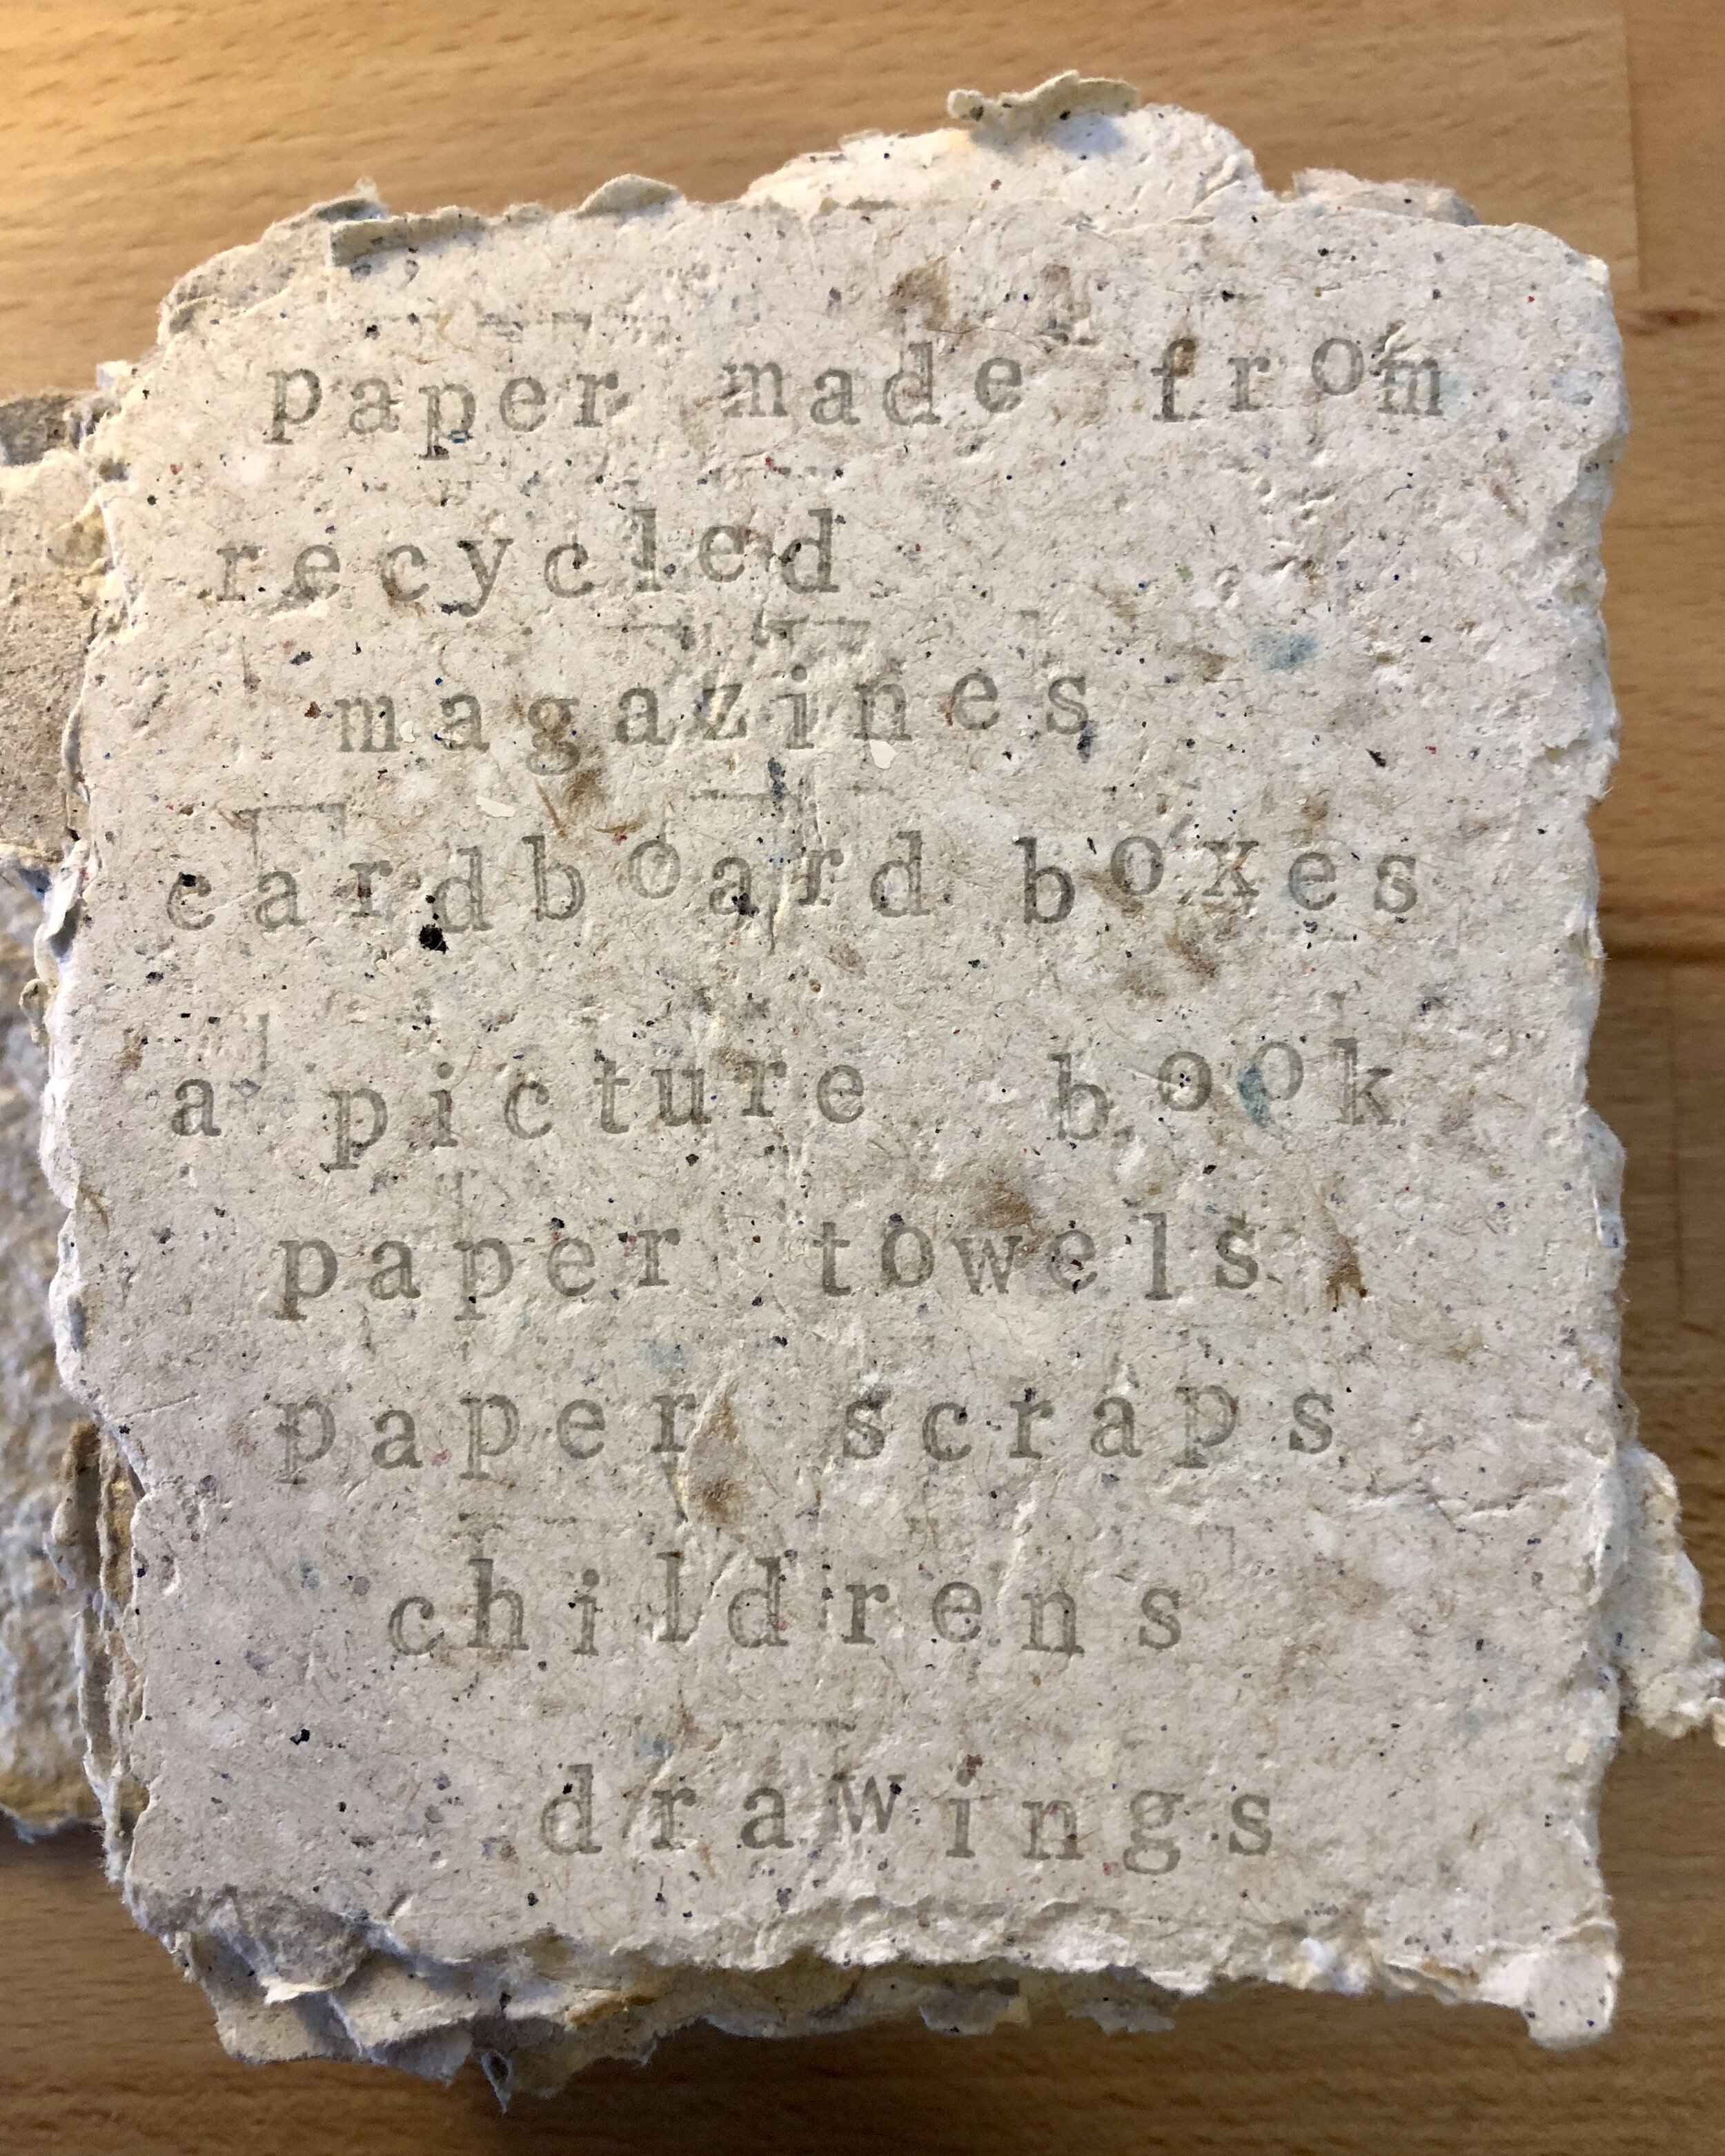 paper made from
recycled
magazines
cardboard boxes
a picture book
paper towels
paper scraps
childrens
drawings